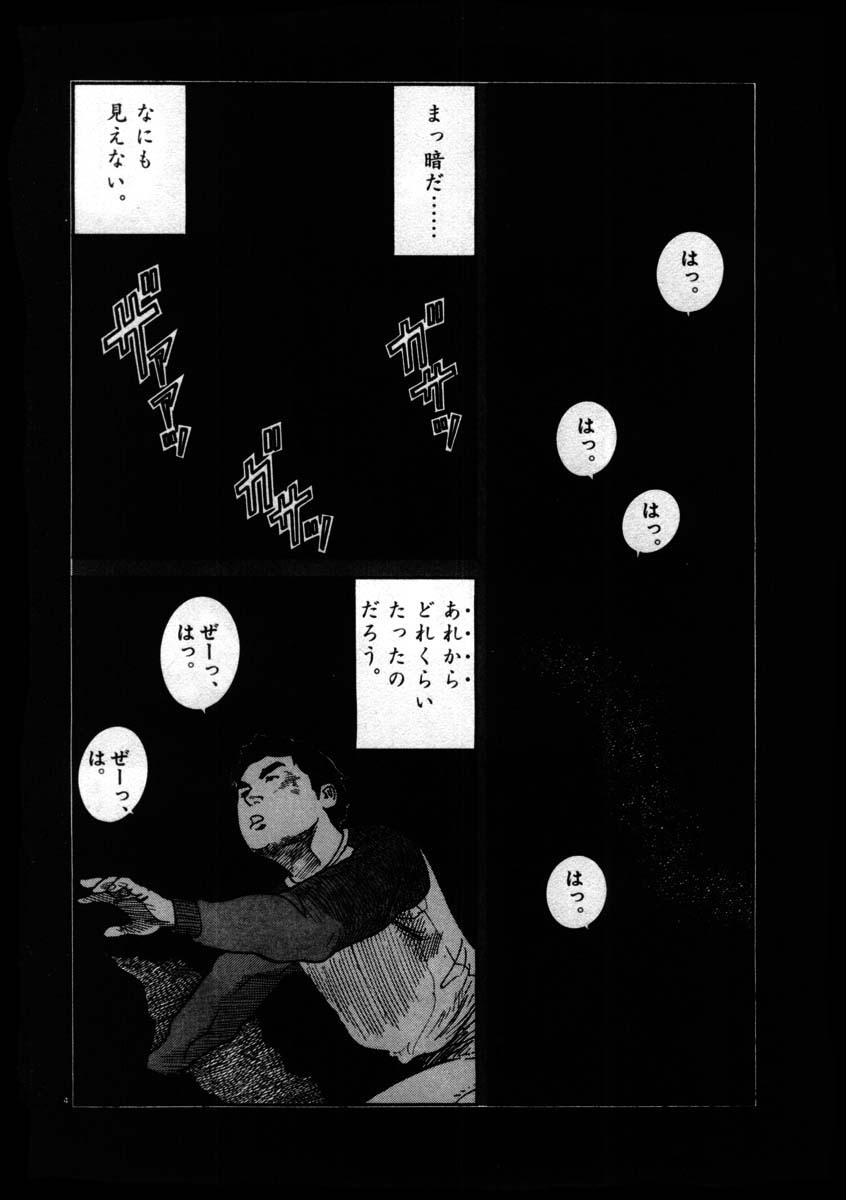 はっ。
はっ。
はっ。
はっ。
まっ暗だ……
なにも
見えない。
ガサッ
ガサッ
ザアアッ
あれから
どれくらい
たったの
だろう。
ぜーっ、
はっ。
ぜーっ、
は。
4